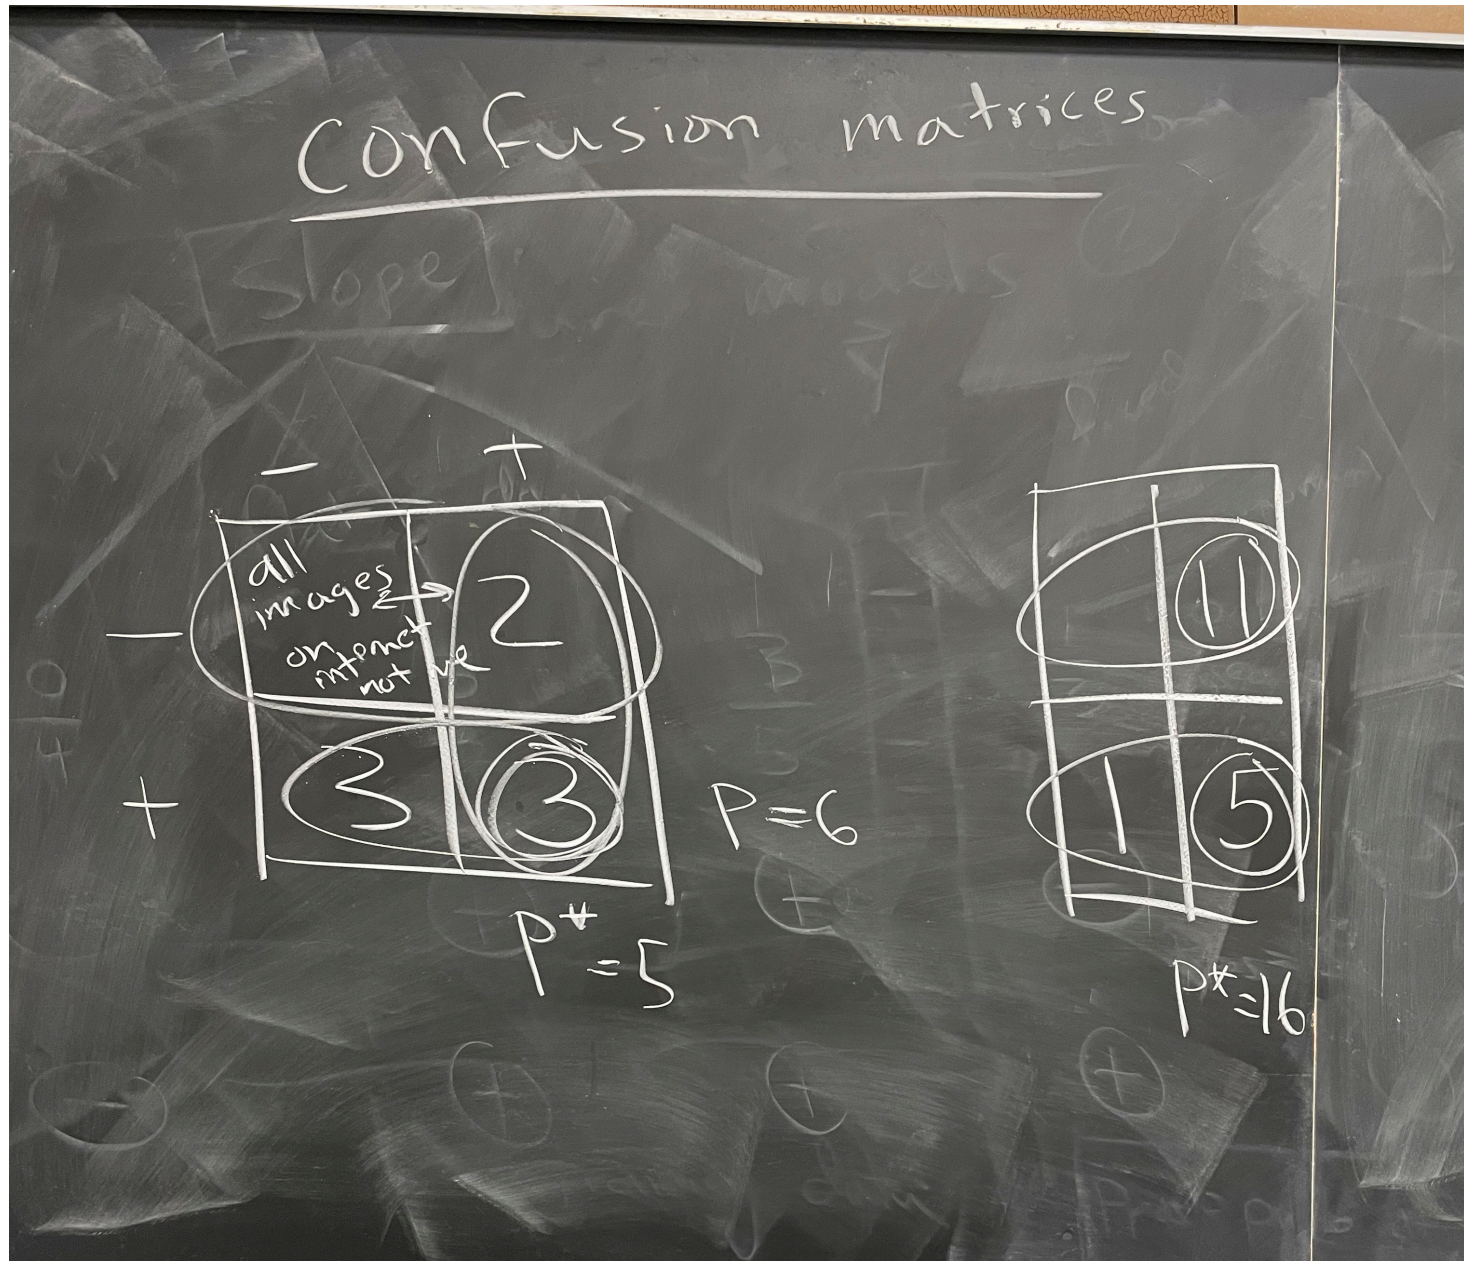 Confusion matrices
Slope
models
- +
all
images
on
internet
not me
2
-
3 3
+
P=6
P* =5
11
1 5
P*=16